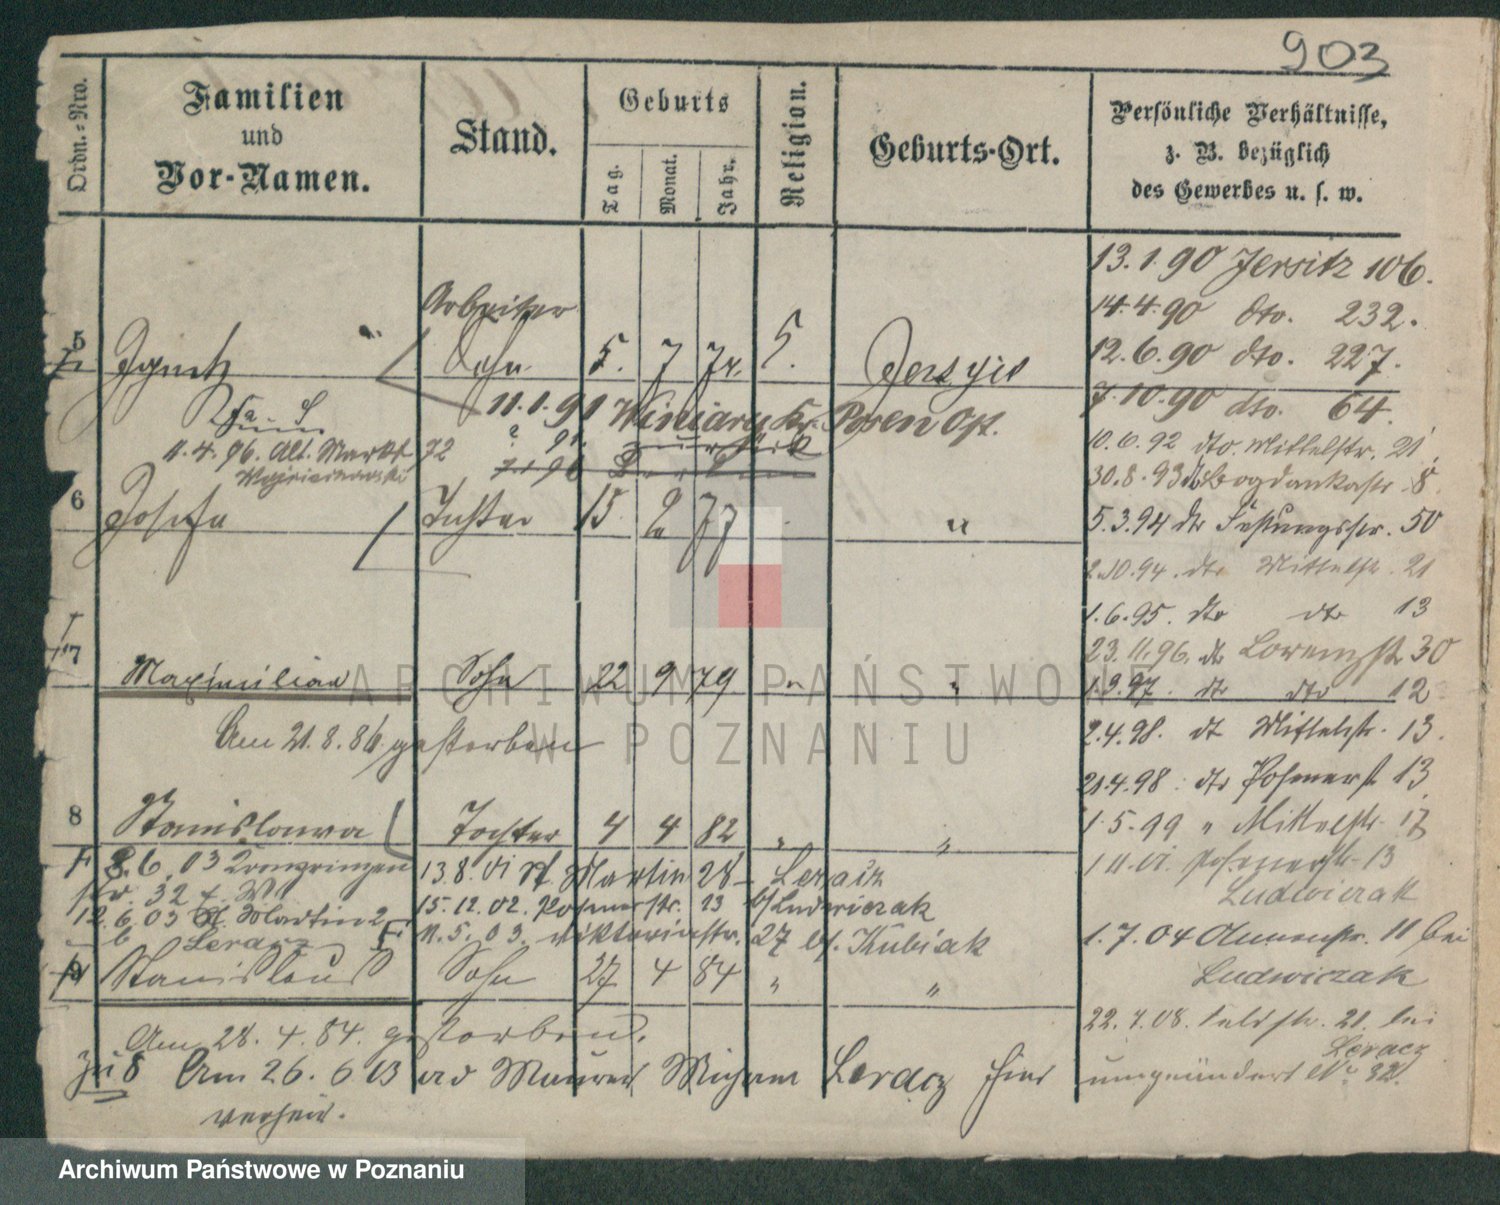 903
Ordn.-Nro.
Familien
und
Vor-Namen.
Stand.
Geburts
Tag.
Monat.
Jahr.
Religion.
Geburts-Ort.
Persönliche Verhältnisse,
z. B. bezüglich
des Gewerbes u. s. w.
13.1.90 Jersitz 106.
14.4.90 dto. 232.
12.6.90 dto. 227.
7.10.90 dto. 64.
10.6.92 dto. Mittelstr. 21
30.8.93 dto Bogdankastr. 8
5.3.94 dto Festungsstr. 50
2.10.94. dto Mittelstr. 21
1.6.95. dto dto 13
23.11.96. dto Lorenzstr 30
1.9.97. dto dto 12
2.4.98. dt Mittelstr. 13.
21.4.98. dto Posenerst 13
1.5.99 " Mittelstr. 17
Posenerstr. 13
Ludwiczak
1.7.04 Annenstr. 11 bei
Ludwiczak
22.7.08. Feldstr. 21. bei
Leracz
umgeändert No 32.
Arbeiter
5 Ignatz Sohn 5. 7 74. Jersyce
11.1.91 Winiary Kr. Posen Ost.
zurück
11.4.96. Alt. Markt 72
Berlin
6 Josefa Tochter 15 2 77 "
7 Maximilian Sohn 22 9 79 " "
Am 21.8.86 gestorben
8 Stanislawa Tochter 4 4 82 " "
3.6.03 Kronprinzen
str. 32 b. W
13.8.01 St. Martin 28 Leracz
12.6.03 St. Martin 2
b Leracz
15.12.02. Posenerstr. 13 b/ Ludwiczak
11.5.03. Viktoriastr. 27 bf. Kubiak
9 Stanislaus Sohn 27 4 84 " "
Am 28.4.84. gestorben.
zu 8 Am 26.6 03 Maurer Leracz hier
verheir.
ARCHIWUM PAŃSTWOWE
W POZNANIU
Archiwum Państwowe w Poznaniu